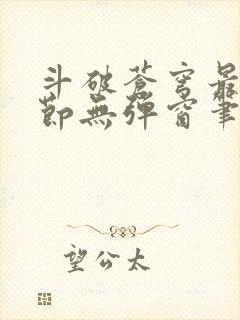 斗破苍穹最
节无弹窗笔
望公太